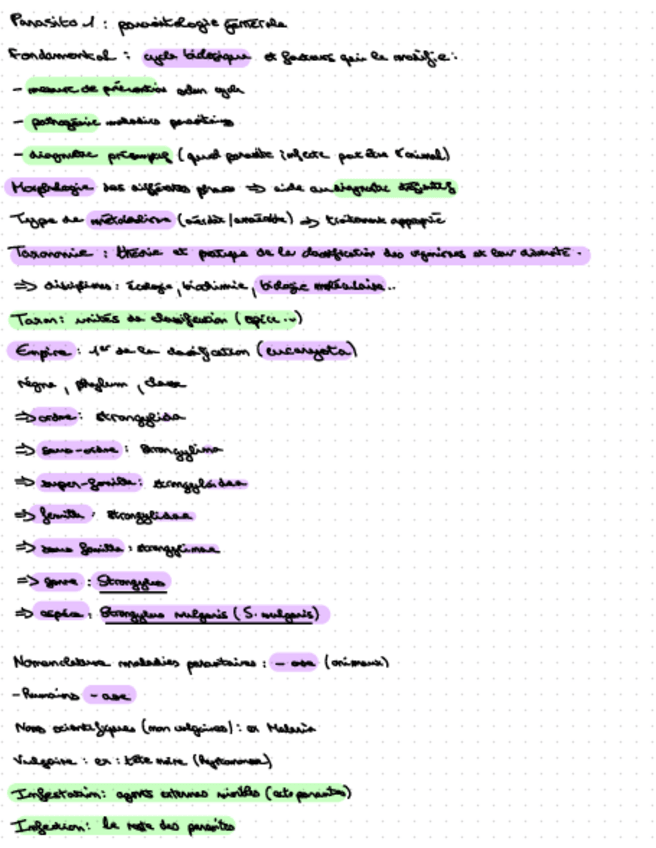 Parasito 1 : parasitologie générale
Fondamental : cycle biologique et facteurs qui le modifie :
- mesure de prévention selon cycle
- pathogénie maladies parasitaires
- diagnostic présomptif (quel parasite infecte peut être l'animal)
Morphologie des différentes phases => aide au diagnostic définitif
Type de métabolisme (aérobie/anaérobie) => traitement approprié
Taxonomie : théorie et pratique de la classification des organismes et leur diversité.
=> disciplines : écologie, biochimie, biologie moléculaire..
Taxon : unités de classification (espèce ...)
Empire : 1er de la classification (eucaryota)
règne, phylum, classe
=> ordre : strongylida
=> sous-ordre : Strongylina
=> super-famille : strongyloidea
=> famille : strongylidae
=> sous famille : strongylinae
=> genre : Strongylus
=> espèce : Strongylus vulgaris (S. vulgaris)
Nomenclature maladies parasitaires : - ose (animaux)
- Humains - ase
Noms scientifiques (non vulgaires) : ex Malaria
Vulgaire : ex : tête noire
Infestation : agents externes visibles (ectoparasites)
Infection : le reste des parasites